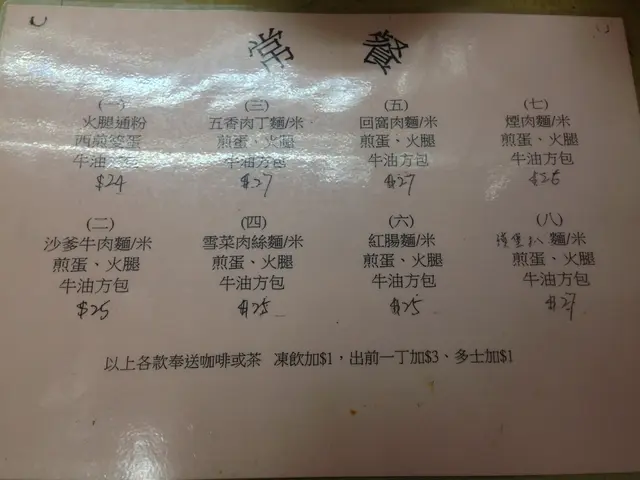 常 餐
(一)
火腿通粉
西煎雙蛋
牛油
$24
(三)
五香肉丁麵/米
煎蛋、火腿
牛油方包
$27
(五)
回窩肉麵/米
煎蛋、火腿
牛油方包
$27
(七)
煙肉麵/米
煎蛋、火腿
牛油方包
$26
(二)
沙爹牛肉麵/米
煎蛋、火腿
牛油方包
$25
(四)
雪菜肉絲麵/米
煎蛋、火腿
牛油方包
$25
(六)
紅腸麵/米
煎蛋、火腿
牛油方包
$25
(八)
漢堡扒 麵/米
煎蛋、火腿
牛油方包
$27
以上各款奉送咖啡或茶 凍飲加$1，出前一丁加$3、多士加$1